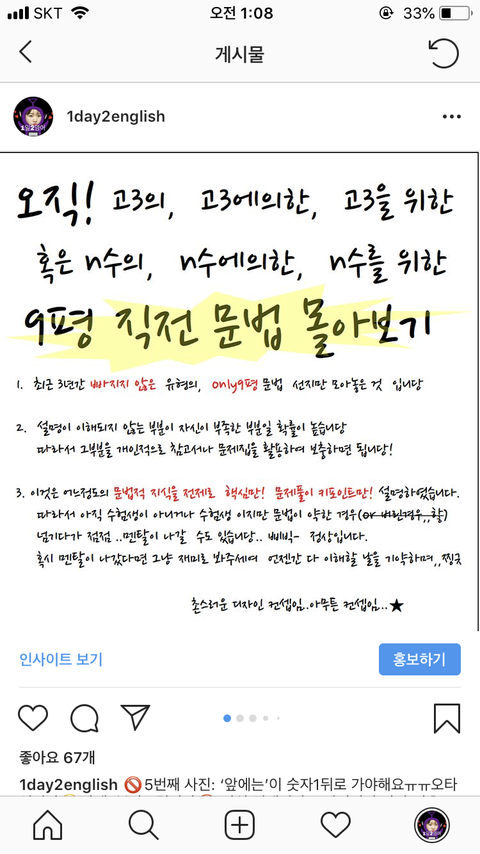 SKT 오전 1:08 33%
게시물
1day2english
오직! 고3의, 고3에의한, 고3을 위한
혹은 n수의, n수에의한, n수를 위한
9평 직전 문법 몰아보기
1. 최근 3년간 빠지지 않은 유형의, only9평 문법 선지만 모아놓은 것 입니당
2. 설명이 이해되지 않는 부분이 자신이 부족한 부분일 확률이 높습니당
따라서 그부분을 개인적으로 참고서나 문제집을 활용하여 보충하면 됩니당!
3. 이것은 어느정도의 문법적 지식을 전제로 핵심만! 문제풀이 키포인트만! 설명하였습니다.
따라서 아직 수험생이 아니거나 수험생 이지만 문법이 약한 경우(or 버린경우,,핳)
넘기다가 점점 ..멘탈이 나갈 수도 있습니당.. 삐빅- 정상입니다.
혹시 멘탈이 나갔다면 그냥 재미로 봐주세여 언젠간 다 이해할 날을 기약하며,,찡긋
촌스러운 디자인 컨셉임..아무튼 컨셉임...★
인사이트 보기 홍보하기
좋아요 67개
1day2english 🚫5번째 사진: ‘앞에는’이 숫자1뒤로 가야해요ㅠㅠ오타